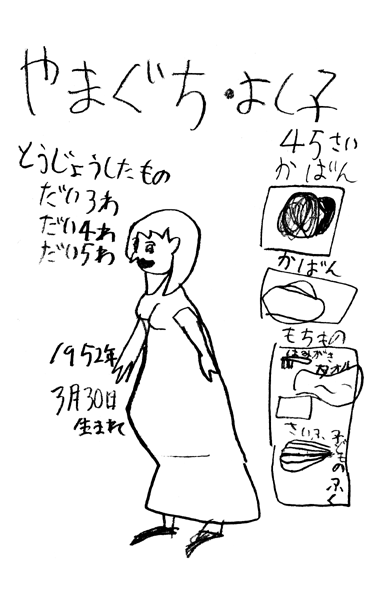 やまぐち・よし子
45さい
とうじょうしたもの
だい3わ
だい4わ
だい5わ
かばん
かばん
もちもの
はみがき
タオル
さいふ
こどものふく
1952年
3月30日
生まれ